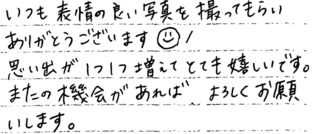 いつも表情の良い写真を撮ってもらい
ありがとうございます☺!
思い出が1つ1つ増えてとても嬉しいです。
またの機会があれば、よろしくお願
いします。